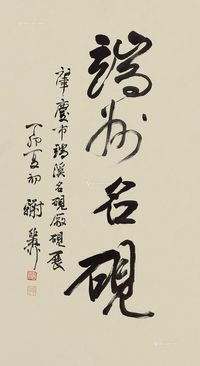 端州名硯
肇慶市端溪名硯廠硯展
丁卯夏初